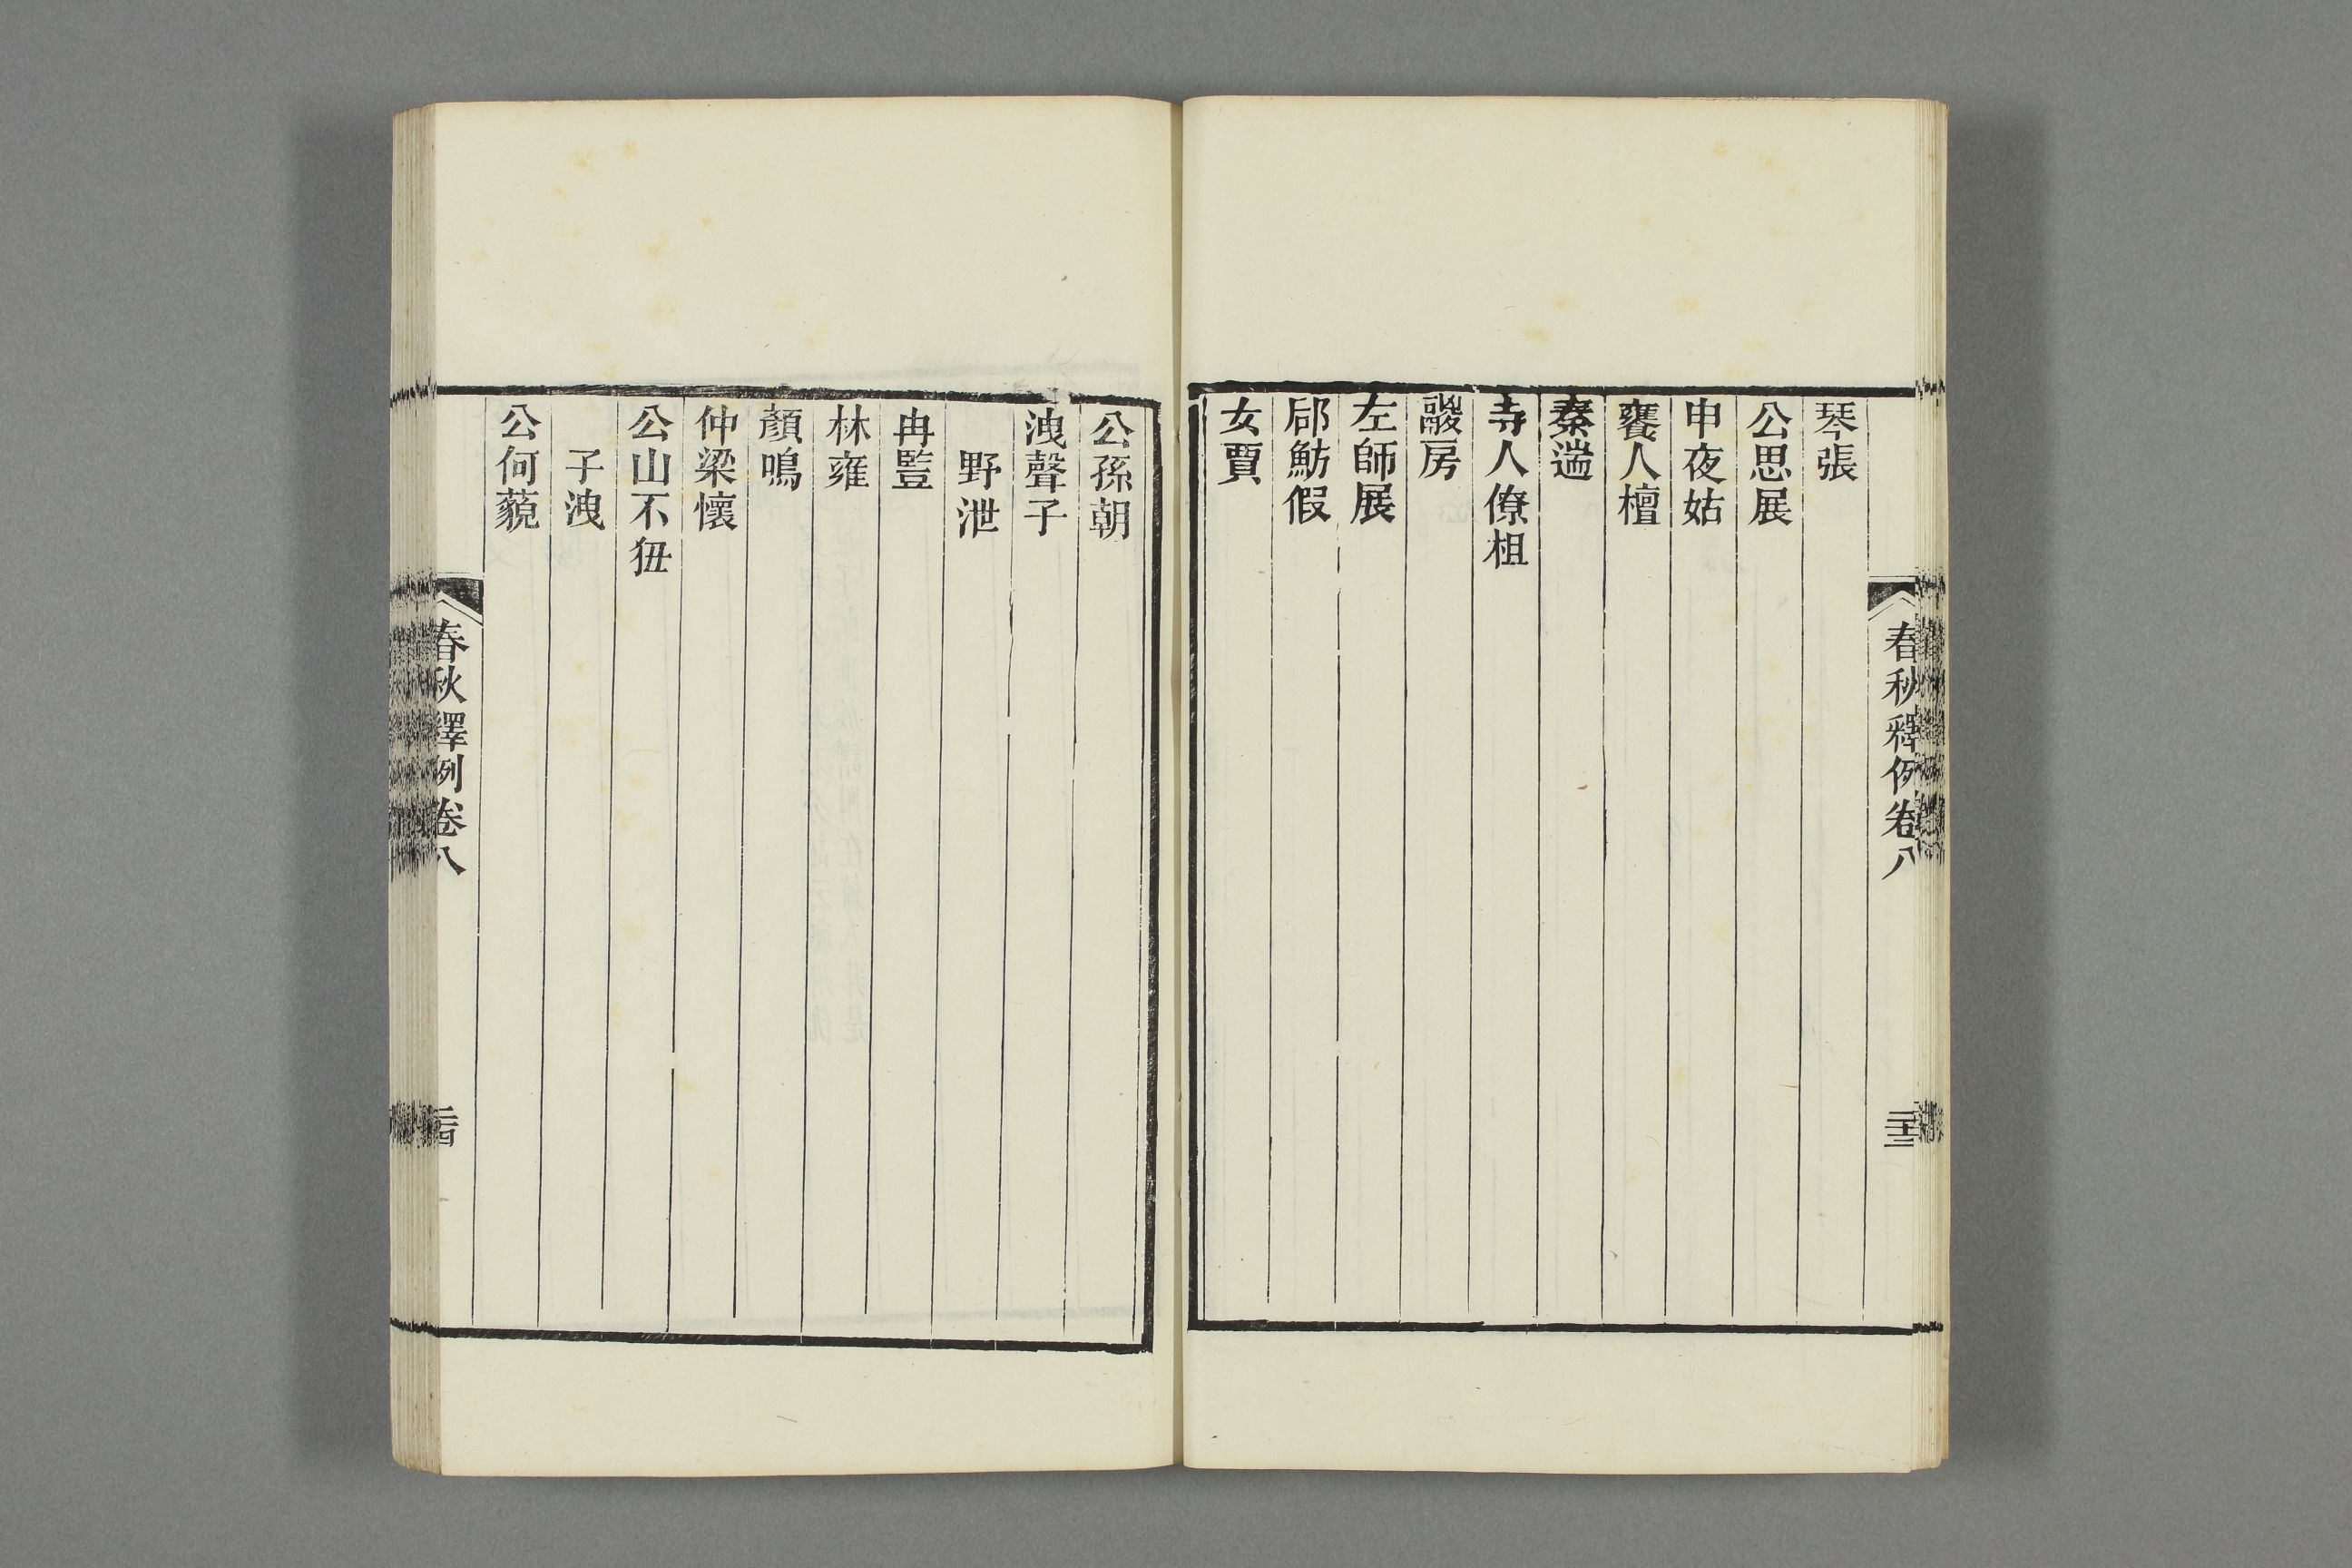 春秋釋例卷八
三十三
琴張
公思展
申夜姑
饔人檀
秦遄
寺人僚柤
鬷房
左師展
郈魴假
女賈
公孫朝
洩聲子
野泄
冉豎
林雍
顏鳴
仲梁懷
公山不狃
子洩
公何藐
春秋釋例卷八